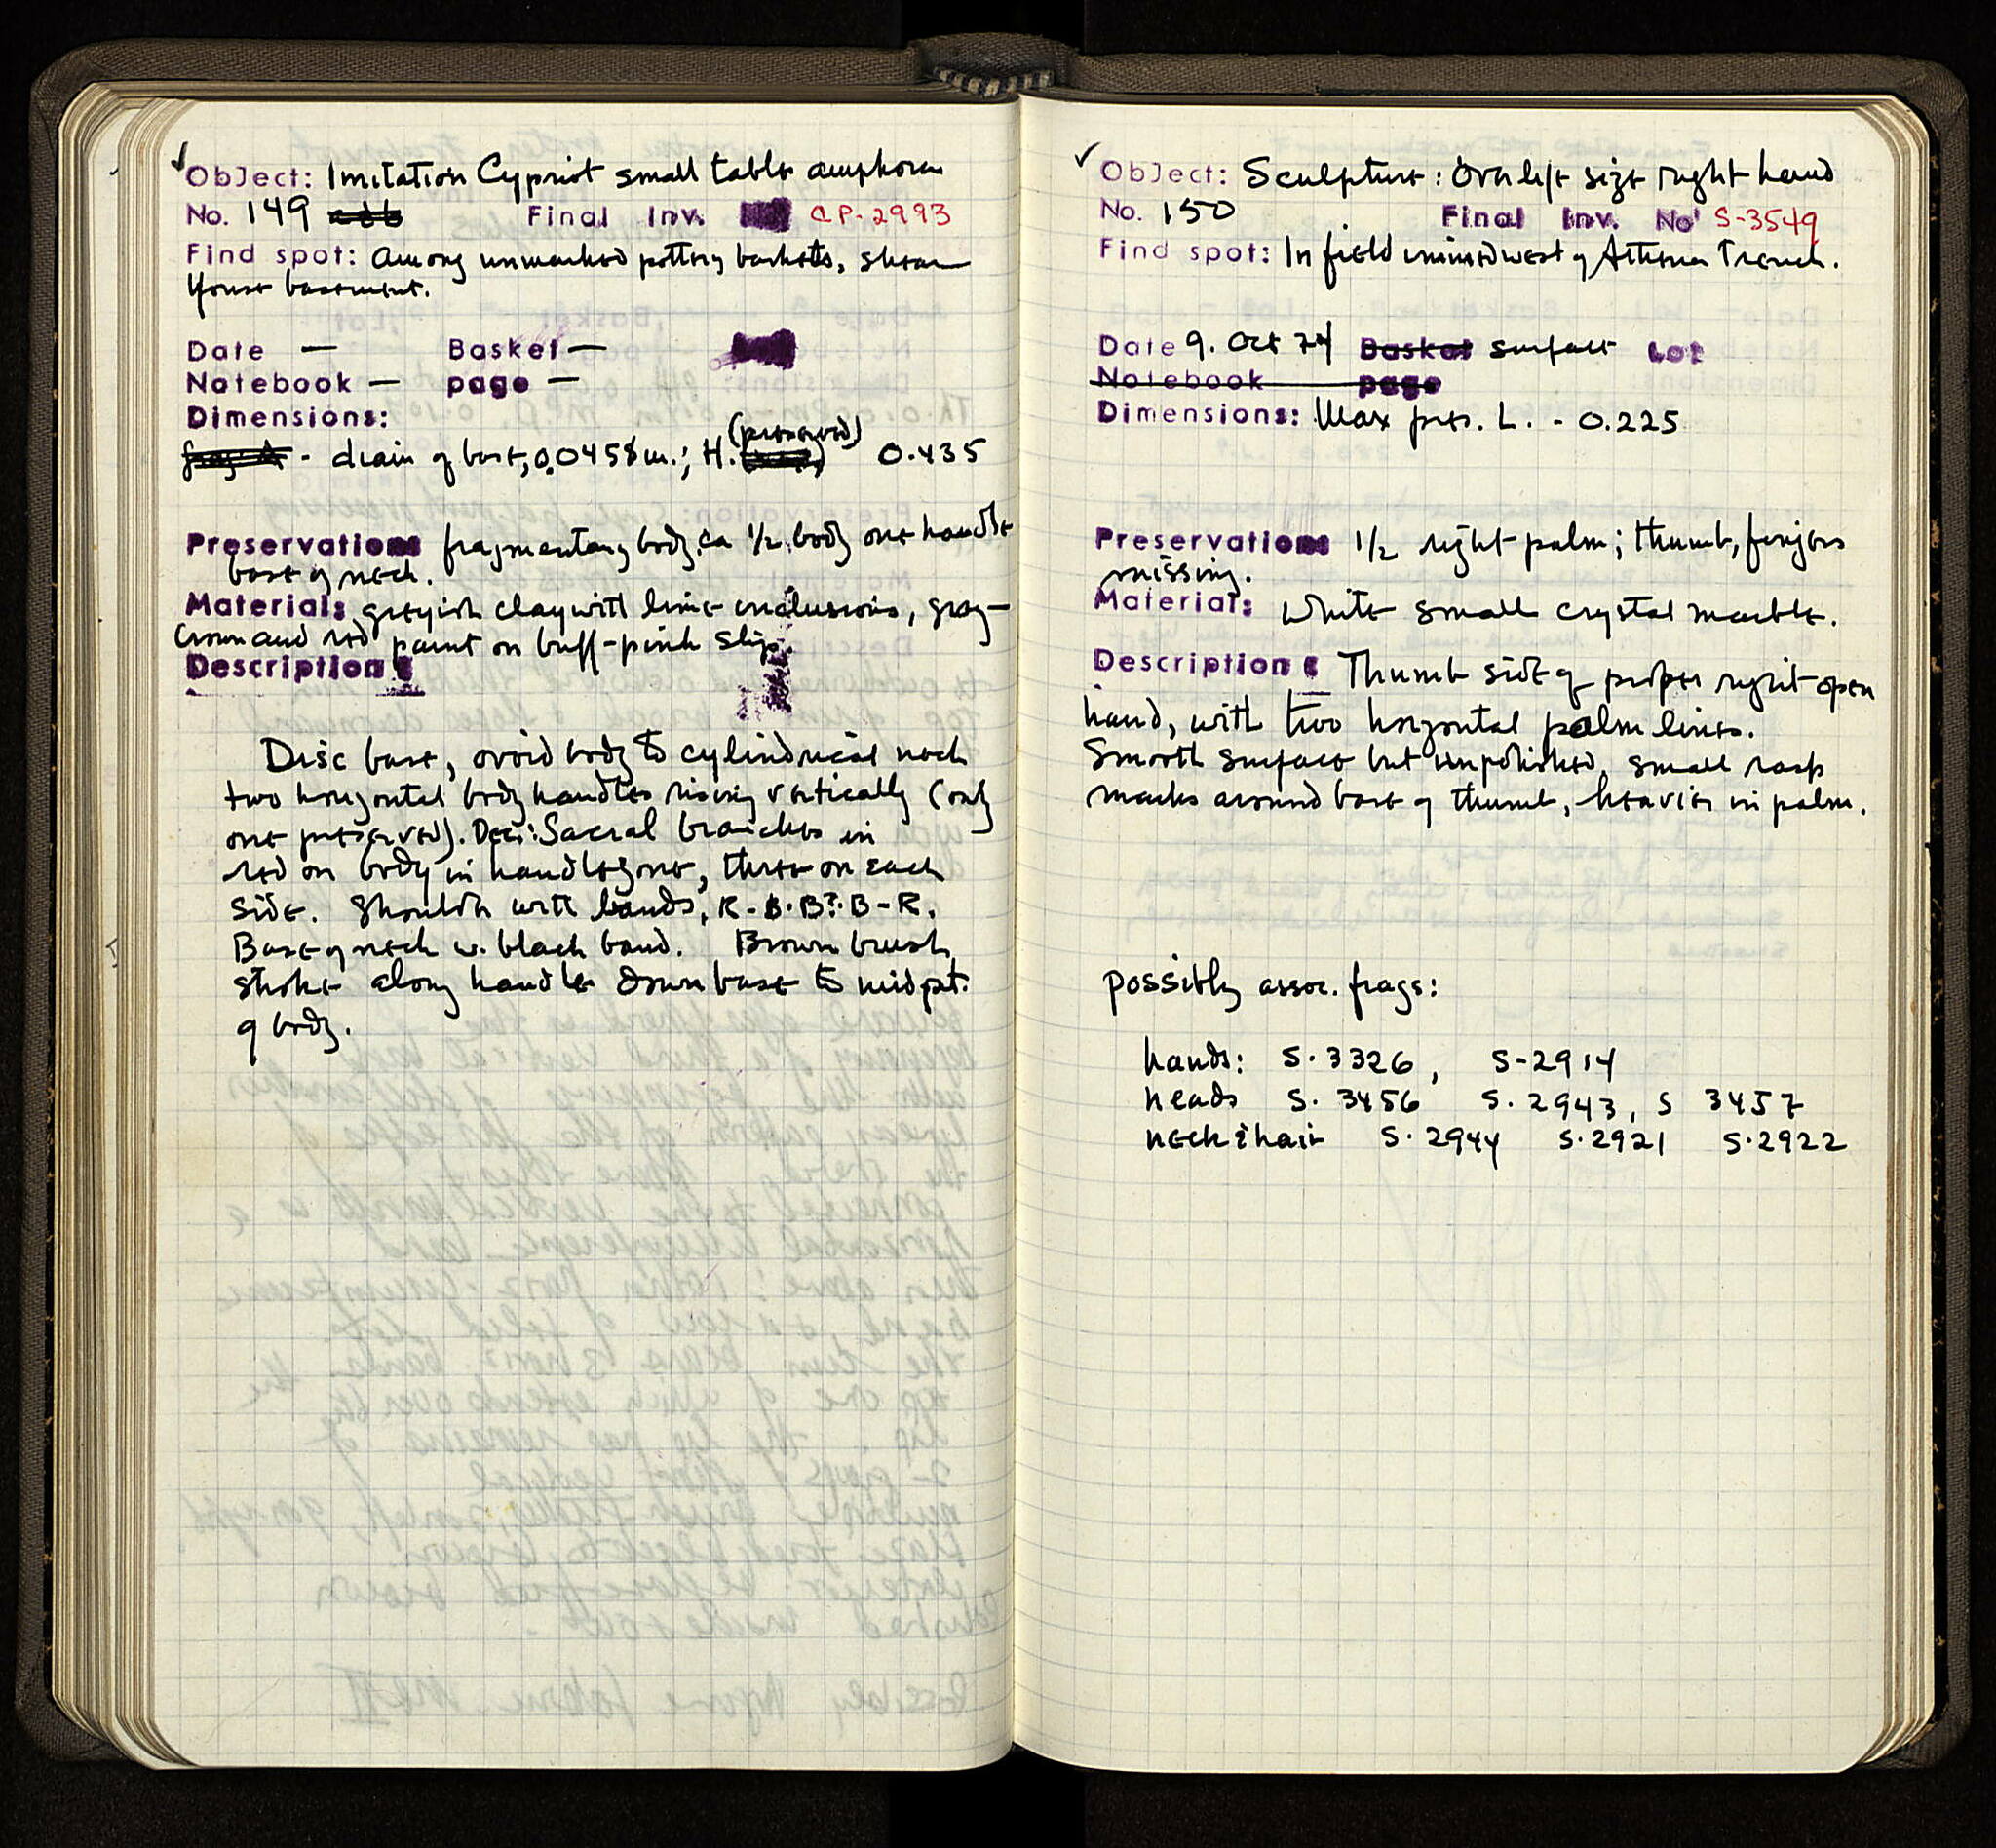 ✓ Object: Imitation Cypriot small table amphora
No. 149 Final Inv. CP-2993
Find spot: Among unmarked pottery baskets, Shear
House basement.
Date — Basket —
Notebook — page —
Dimensions:
- diam of base, 0.0458 m.; H. (preserved) 0.435
Preservation: fragmentary body, ca 1/2 body one handle
base of neck.
Material: greyish clay with lime inclusions, gray-
brown and red paint on buff-pink slip.
Description:
Disc base, ovoid body to cylindrical neck
two horizontal body handles rising vertically (only
one preserved). Dec: Sacral branches in
red on body in handle zone, three on each
side. Shoulder with bands, R-B-B?-B-R.
Base of neck w. black band. Brown brush
stroke along handle down base to mid pt.
of body.
✓ Object: Sculpture: Over life size right hand
No. 150 Final Inv. No. S-3549
Find spot: In field immed west of Athena Trench.
Date 9. Oct 74 Basket surface Lot
Notebook page
Dimensions: Max pres. L. - 0.225
Preservation: 1/2 right palm; thumb, fingers
missing.
Material: White small crystal marble.
Description: Thumb side of proper right open
hand, with two horizontal palm lines.
Smooth surface but unpolished, small rasp
marks around base of thumb, heavier in palm.
possibly assoc. frags:
hands: S-3326, S-2914
heads S. 3456 S. 2943, S 3457
neck & hair S-2944 S-2921 S-2922